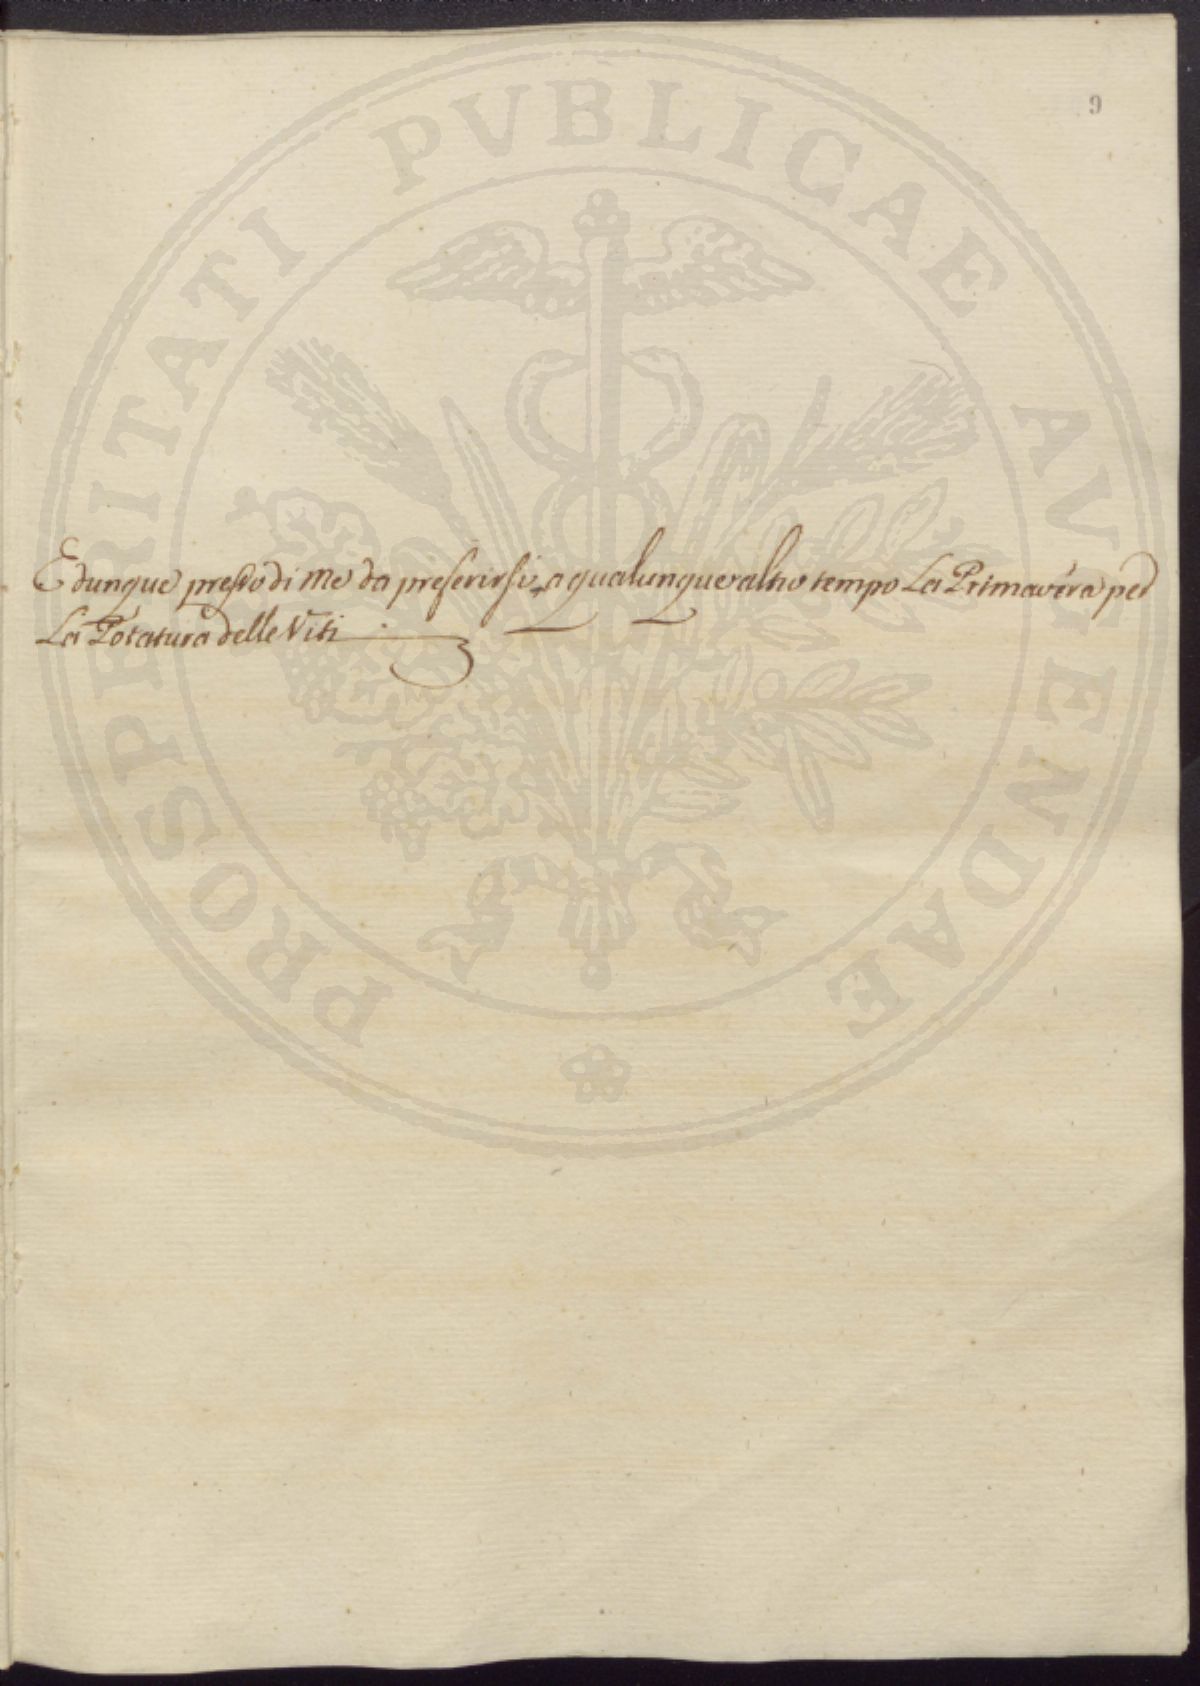 9
E dunque presso di me da preferirsi a qualunque altro tempo La Primavera per
La Potatura delle Viti
PROSPERITATI PUBLICAE AUGENDAE